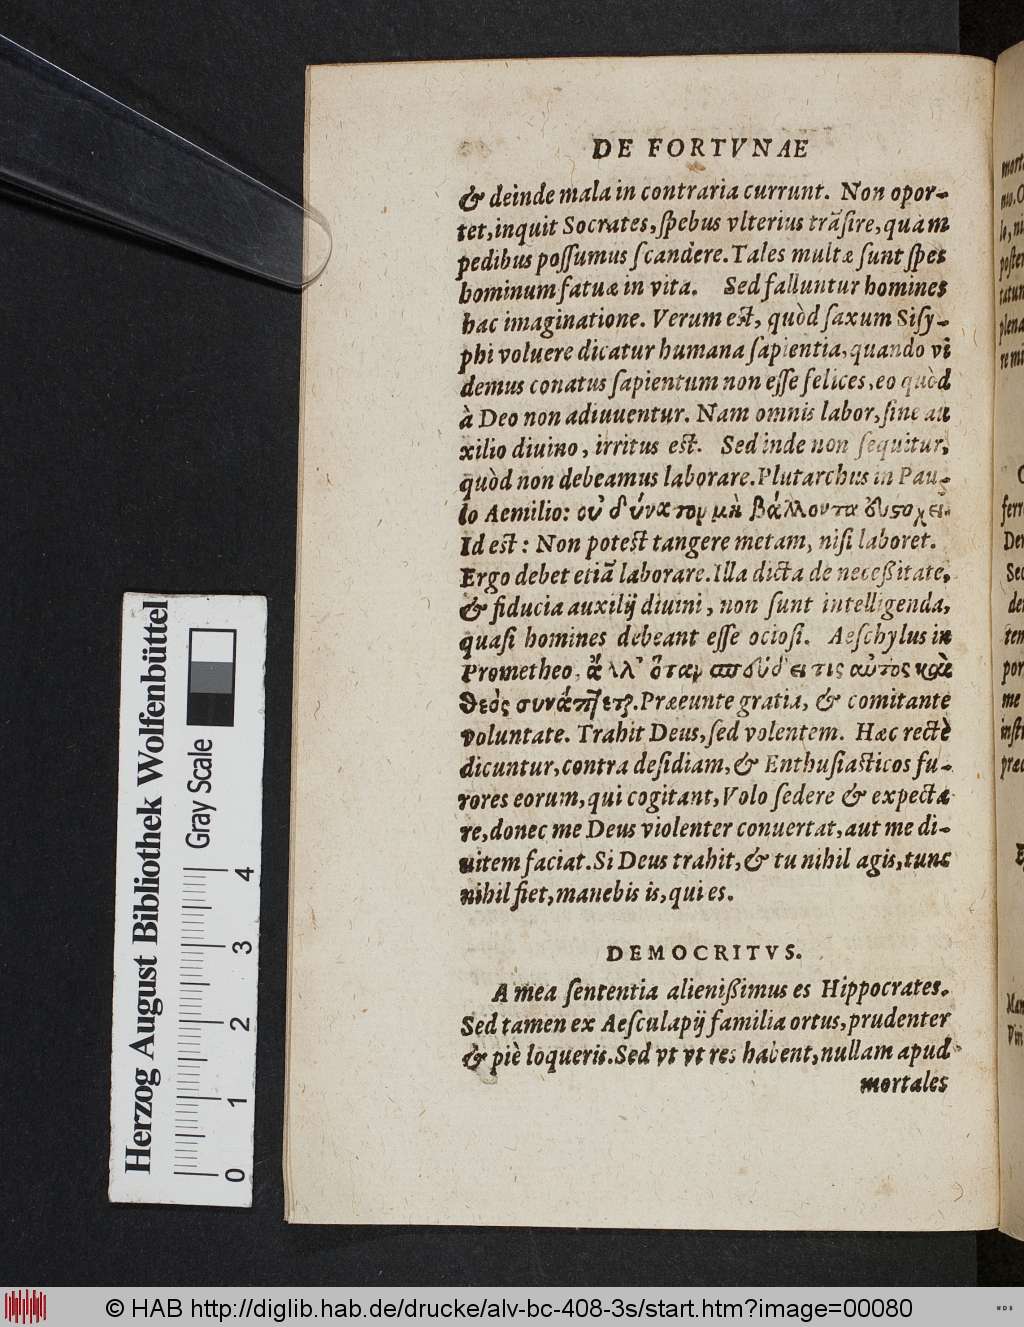 DE FORTVNAE
& deinde mala in contraria currunt. Non opor-
tet, inquit Socrates, ſpebus vlterius trãſire, quàm
pedibus poſſumus ſcandere. Tales multæ ſunt ſpes
hominum fatuæ in vita. Sed falluntur homines
hac imaginatione. Verum eſt, quòd ſaxum Siſy-
phi voluere dicatur humana ſapientia, quando vi
demus conatus ſapientum non eſſe felices, eo quòd
à Deo non adiuuentur. Nam omnis labor, ſine au
xilio diuino, irritus eſt. Sed inde non ſequitur,
quòd non debeamus laborare. Plutarchus in Pau-
lo Aemilio: οὐ δύνατον μὴ βάλλοντα
Id eſt: Non poteſt tangere metam, niſi laboret.
Ergo debet etiã laborare. Illa dicta de neceßitate,
& fiducia auxilij diuini, non ſunt intelligenda,
quaſi homines debeant eſſe ocioſi. Aeſchylus in
Prometheo, ἀλλ' ὅταν σπεύδει τις αὐτος καὶ
θεὸς συνάπτεται. Præeunte gratia, & comitante
voluntate. Trahit Deus, ſed volentem. Hæc rectè
dicuntur, contra deſidiam, & Enthuſiaſticos fu-
rores eorum, qui cogitant, Volo ſedere & expecta
re, donec me Deus violenter conuertat, aut me di-
uitem faciat. Si Deus trahit, & tu nihil agis, tunc
nihil fiet, manebis is, qui es.
DEMOCRITVS.
A mea ſententia alienißimus es Hippocrates.
Sed tamen ex Aeſculapij familia ortus, prudenter
& piè loqueris. Sed vt vt res habent, nullam apud
mortales
Herzog August Bibliothek Wolfenbüttel
Gray Scale
0 1 2 3 4
© HAB http://diglib.hab.de/drucke/alv-bc-408-3s/start.htm?image=00080